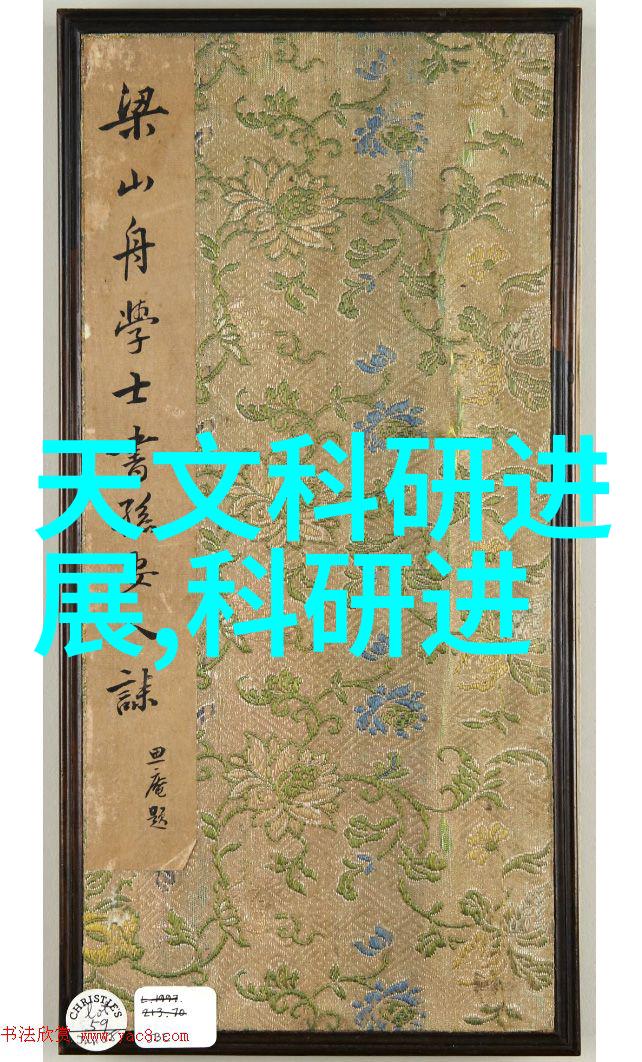 梁山舟學士書孫安人誄
庵題
天文科研进
展,科研进
CHRISTIE'S
Lot
59
L.1997.
213.70
书法欣赏 www.yac8.com